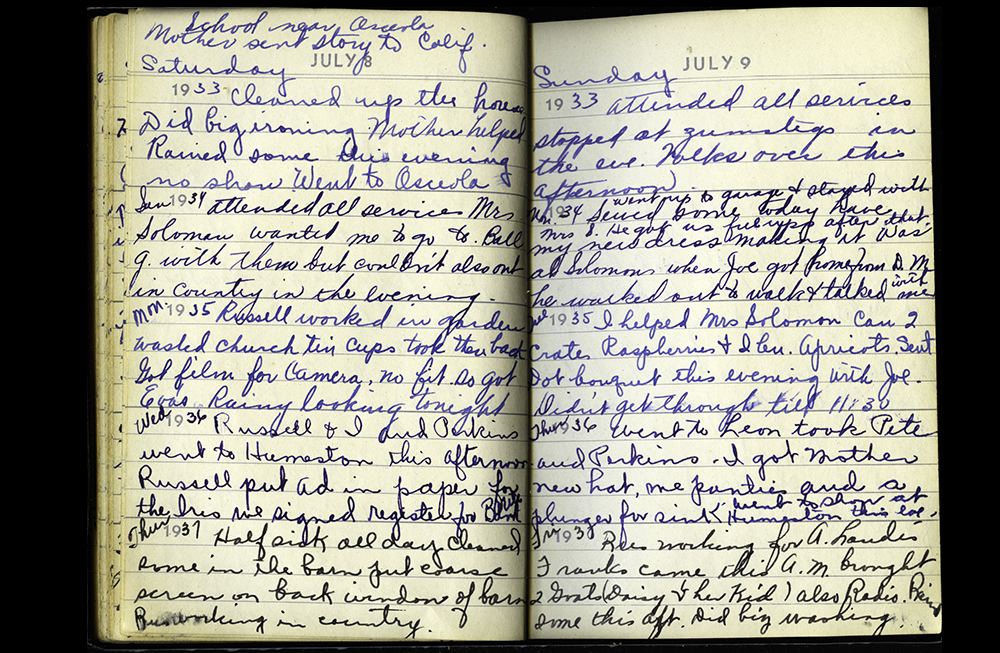 School near Osceola
Mother sent story to Calif.
Saturday JULY 8
1933 Cleaned up the house
Did big ironing Mother helped
Rained some this evening
no show Went to Osceola
Sun 1934 attended all services Mrs
Soloman wanted me to go to Ball
g. with them but couldn't also out
in country in the evening.
Mon. 1935 Russell worked in garden
washed church tin cups took them back
Got film for Camera, no fit. so got
Evas Rainy looking tonight
Wed 1936 Russell & I and Perkins
went to Humeston this afternoon
Russell put ad in paper for
the Iris we signed register for Bank Nite
Thur 1937 Half sick all day Cleaned
some in the barn put coarse
screen on back window of barn
Russ working in country.
JULY 9
Sunday
1933 attended all services
stopped at Zumstegs in
the eve. Folks over this
afternoon
went up to garage & stayed with
Mon. 1934 Sewed some today have
Mrs S. He got us after that
my new dress making it Was
at Solomons when Joe got home from D. M.
he walked out to walk & talked with me
Tue 1935 I helped Mrs Solomon Can 2
crates Raspberries & 2 bu. Apricots. Sent
Dot bouquet this evening with Joe.
Didn't get through till 11:30
Thur 1936 Went to Leon took Pete
and Perkins. I got Mother
new hat, me panties and a
plunger for sink Went to show at
Humeston this eve.
Fri 1937 Russ working for A. Landis
Franks came this A.M. brought
2 Goats (Daisy & her Kid) also Radio. Rain
some this aft. Did big washing.